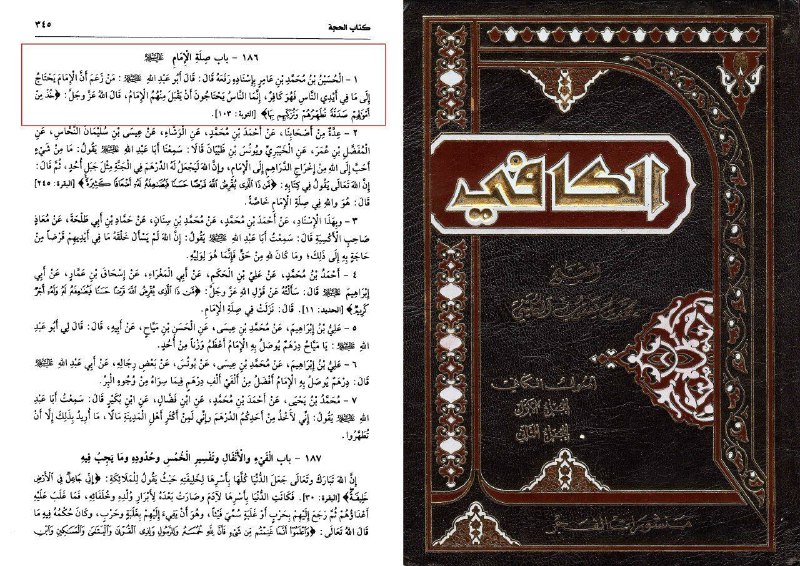 كتاب الحجة
٣٤٥
١٨٦ - باب صِلَةِ الْإِمَامِ
١ - الْحُسَيْنُ بْنُ مُحَمَّدِ بْنِ عَامِرٍ بِإِسْنَادِهِ رَفَعَهُ قَالَ: قَالَ أَبُو عَبْدِ اللهِ ﷺ: مَنْ زَعَمَ أَنَّ الْإِمَامَ يَحْتَاجُ
إِلَى مَا فِي أَيْدِي النَّاسِ فَهُوَ كَافِرٌ، إِنَّمَا النَّاسُ يَحْتَاجُونَ أَنْ يَقْبَلَ مِنْهُمُ الْإِمَامُ، قَالَ اللهُ عَزَّ وَجَلَّ: ﴿خُذْ مِنْ
أَمْوَالِهِمْ صَدَقَةً تُطَهِّرُهُمْ وَتُزَكِّيهِمْ بِهَا﴾ [التوبة: ١٠٣].
٢ - عِدَّةٌ مِنْ أَصْحَابِنَا، عَنْ أَحْمَدَ بْنِ مُحَمَّدٍ، عَنِ الْوَشَّاءِ، عَنْ عِيسَى بْنِ سُلَيْمَانَ النَّحَّاسِ، عَنِ
الْمُفَضَّلِ بْنِ عُمَرَ، عَنِ الْخَيْبَرِيِّ وَيُونُسَ بْنِ ظَبْيَانَ قَالَا: سَمِعْنَا أَبَا عَبْدِ اللهِ ﷺ يَقُولُ: مَا مِنْ شَيْءٍ
أَحَبَّ إِلَى اللهِ مِنْ إِخْرَاجِ الدَّرَاهِمِ إِلَى الْإِمَامِ، وَإِنَّ اللهَ لَيَجْعَلُ لَهُ الدِّرْهَمَ فِي الْجَنَّةِ مِثْلَ جَبَلِ أُحُدٍ، ثُمَّ قَالَ:
إِنَّ اللهَ تَعَالَى يَقُولُ فِي كِتَابِهِ: ﴿مَنْ ذَا الَّذِي يُقْرِضُ اللهَ قَرْضًا حَسَنًا فَيُضَاعِفَهُ لَهُ أَضْعَافًا كَثِيرَةً﴾ [البقرة: ٢٤٥]
قَالَ: هُوَ وَاللهِ فِي صِلَةِ الْإِمَامِ خَاصَّةً.
٣ - وَبِهَذَا الْإِسْنَادِ، عَنْ أَحْمَدَ بْنِ مُحَمَّدٍ، عَنْ مُحَمَّدِ بْنِ سِنَانٍ، عَنْ حَمَّادِ بْنِ أَبِي طَلْحَةَ، عَنْ مُعَاذٍ
صَاحِبِ الْأَكْسِيَةِ قَالَ: سَمِعْتُ أَبَا عَبْدِ اللهِ ﷺ يَقُولُ: إِنَّ اللهَ لَمْ يَسْأَلْ خَلْقَهُ مَا فِي أَيْدِيهِمْ قَرْضاً مِنْ
حَاجَةٍ بِهِ إِلَى ذَلِكَ؛ وَمَا كَانَ لِلهِ مِنْ حَقٍّ فَإِنَّمَا هُوَ لِوَلِيِّهِ.
٤ - أَحْمَدُ بْنُ مُحَمَّدٍ، عَنْ عَلِيِّ بْنِ الْحَكَمِ، عَنْ أَبِي الْمَغْرَاءِ، عَنْ إِسْحَاقَ بْنِ عَمَّارٍ، عَنْ أَبِي
إِبْرَاهِيمَ ﷺ قَالَ: سَأَلْتُهُ عَنْ قَوْلِ اللهِ عَزَّ وَجَلَّ: ﴿مَنْ ذَا الَّذِي يُقْرِضُ اللهَ قَرْضًا حَسَنًا فَيُضَاعِفَهُ لَهُ وَلَهُ أَجْرٌ
كَرِيمٌ﴾ [الحديد: ١١]. قَالَ: نَزَلَتْ فِي صِلَةِ الْإِمَامِ.
٥ - عَلِيُّ بْنُ إِبْرَاهِيمَ، عَنْ مُحَمَّدِ بْنِ عِيسَى، عَنِ الْحَسَنِ بْنِ مَيَّاحٍ، عَنْ أَبِيهِ، قَالَ: قَالَ لِي أَبُو عَبْدِ
اللهِ ﷺ: يَا مَيَّاحُ دِرْهَمٌ يُوصَلُ بِهِ الْإِمَامُ أَعْظَمُ وَزْناً مِنْ أُحُدٍ.
٦ - عَلِيُّ بْنُ إِبْرَاهِيمَ، عَنْ مُحَمَّدِ بْنِ عِيسَى، عَنْ يُونُسَ، عَنْ بَعْضِ رِجَالِهِ، عَنْ أَبِي عَبْدِ اللهِ ﷺ
قَالَ: دِرْهَمٌ يُوصَلُ بِهِ الْإِمَامُ أَفْضَلُ مِنْ أَلْفَيْ أَلْفِ دِرْهَمٍ فِيمَا سِوَاهُ مِنْ وُجُوهِ الْبِرِّ.
٧ - مُحَمَّدُ بْنُ يَحْيَى، عَنْ أَحْمَدَ بْنِ مُحَمَّدٍ، عَنِ ابْنِ فَضَّالٍ، عَنِ ابْنِ بُكَيْرٍ قَالَ: سَمِعْتُ أَبَا عَبْدِ
اللهِ ﷺ يَقُولُ: إِنِّي لَآخُذُ مِنْ أَحَدِكُمُ الدِّرْهَمَ وَإِنِّي لَمِنْ أَكْثَرِ أَهْلِ الْمَدِينَةِ مَالًا، مَا أُرِيدُ بِذَلِكَ إِلَّا أَنْ
تُطَهَّرُوا.
١٨٧ - باب الْفَيْءِ وَالْأَنْفَالِ وَتَفْسِيرِ الْخُمُسِ وَحُدُودِهِ وَمَا يَجِبُ فِيهِ
إِنَّ اللهَ تَبَارَكَ وَتَعَالَى جَعَلَ الدُّنْيَا كُلَّهَا بِأَسْرِهَا لِخَلِيفَتِهِ حَيْثُ يَقُولُ لِلْمَلَائِكَةِ: ﴿إِنِّي جَاعِلٌ فِي الْأَرْضِ
خَلِيفَةً﴾ [البقرة: ٣٠]. فَكَانَتِ الدُّنْيَا بِأَسْرِهَا لِآدَمَ وَصَارَتْ بَعْدَهُ لِأَبْرَارِ وُلْدِهِ وَخُلَفَائِهِ، فَمَا غَلَبَ عَلَيْهِ
أَعْدَاؤُهُمْ ثُمَّ رَجَعَ إِلَيْهِمْ بِحَرْبٍ أَوْ غَلَبَةٍ سُمِّيَ فَيْئاً، وَهُوَ أَنْ يَفِيءَ إِلَيْهِمْ بِغَلَبَةٍ وَحَرْبٍ، وَكَانَ حُكْمُهُ فِيهِ مَا
قَالَ اللهُ تَعَالَى: ﴿وَاعْلَمُوا أَنَّمَا غَنِمْتُمْ مِنْ شَيْءٍ فَأَنَّ لِلهِ خُمُسَهُ وَلِلرَّسُولِ وَلِذِي الْقُرْبَى وَالْيَتَامَى وَالْمَسَاكِينِ وَابْنِ
الكافي
الجزء الأول
الجزء الثاني
منشورات الفجر